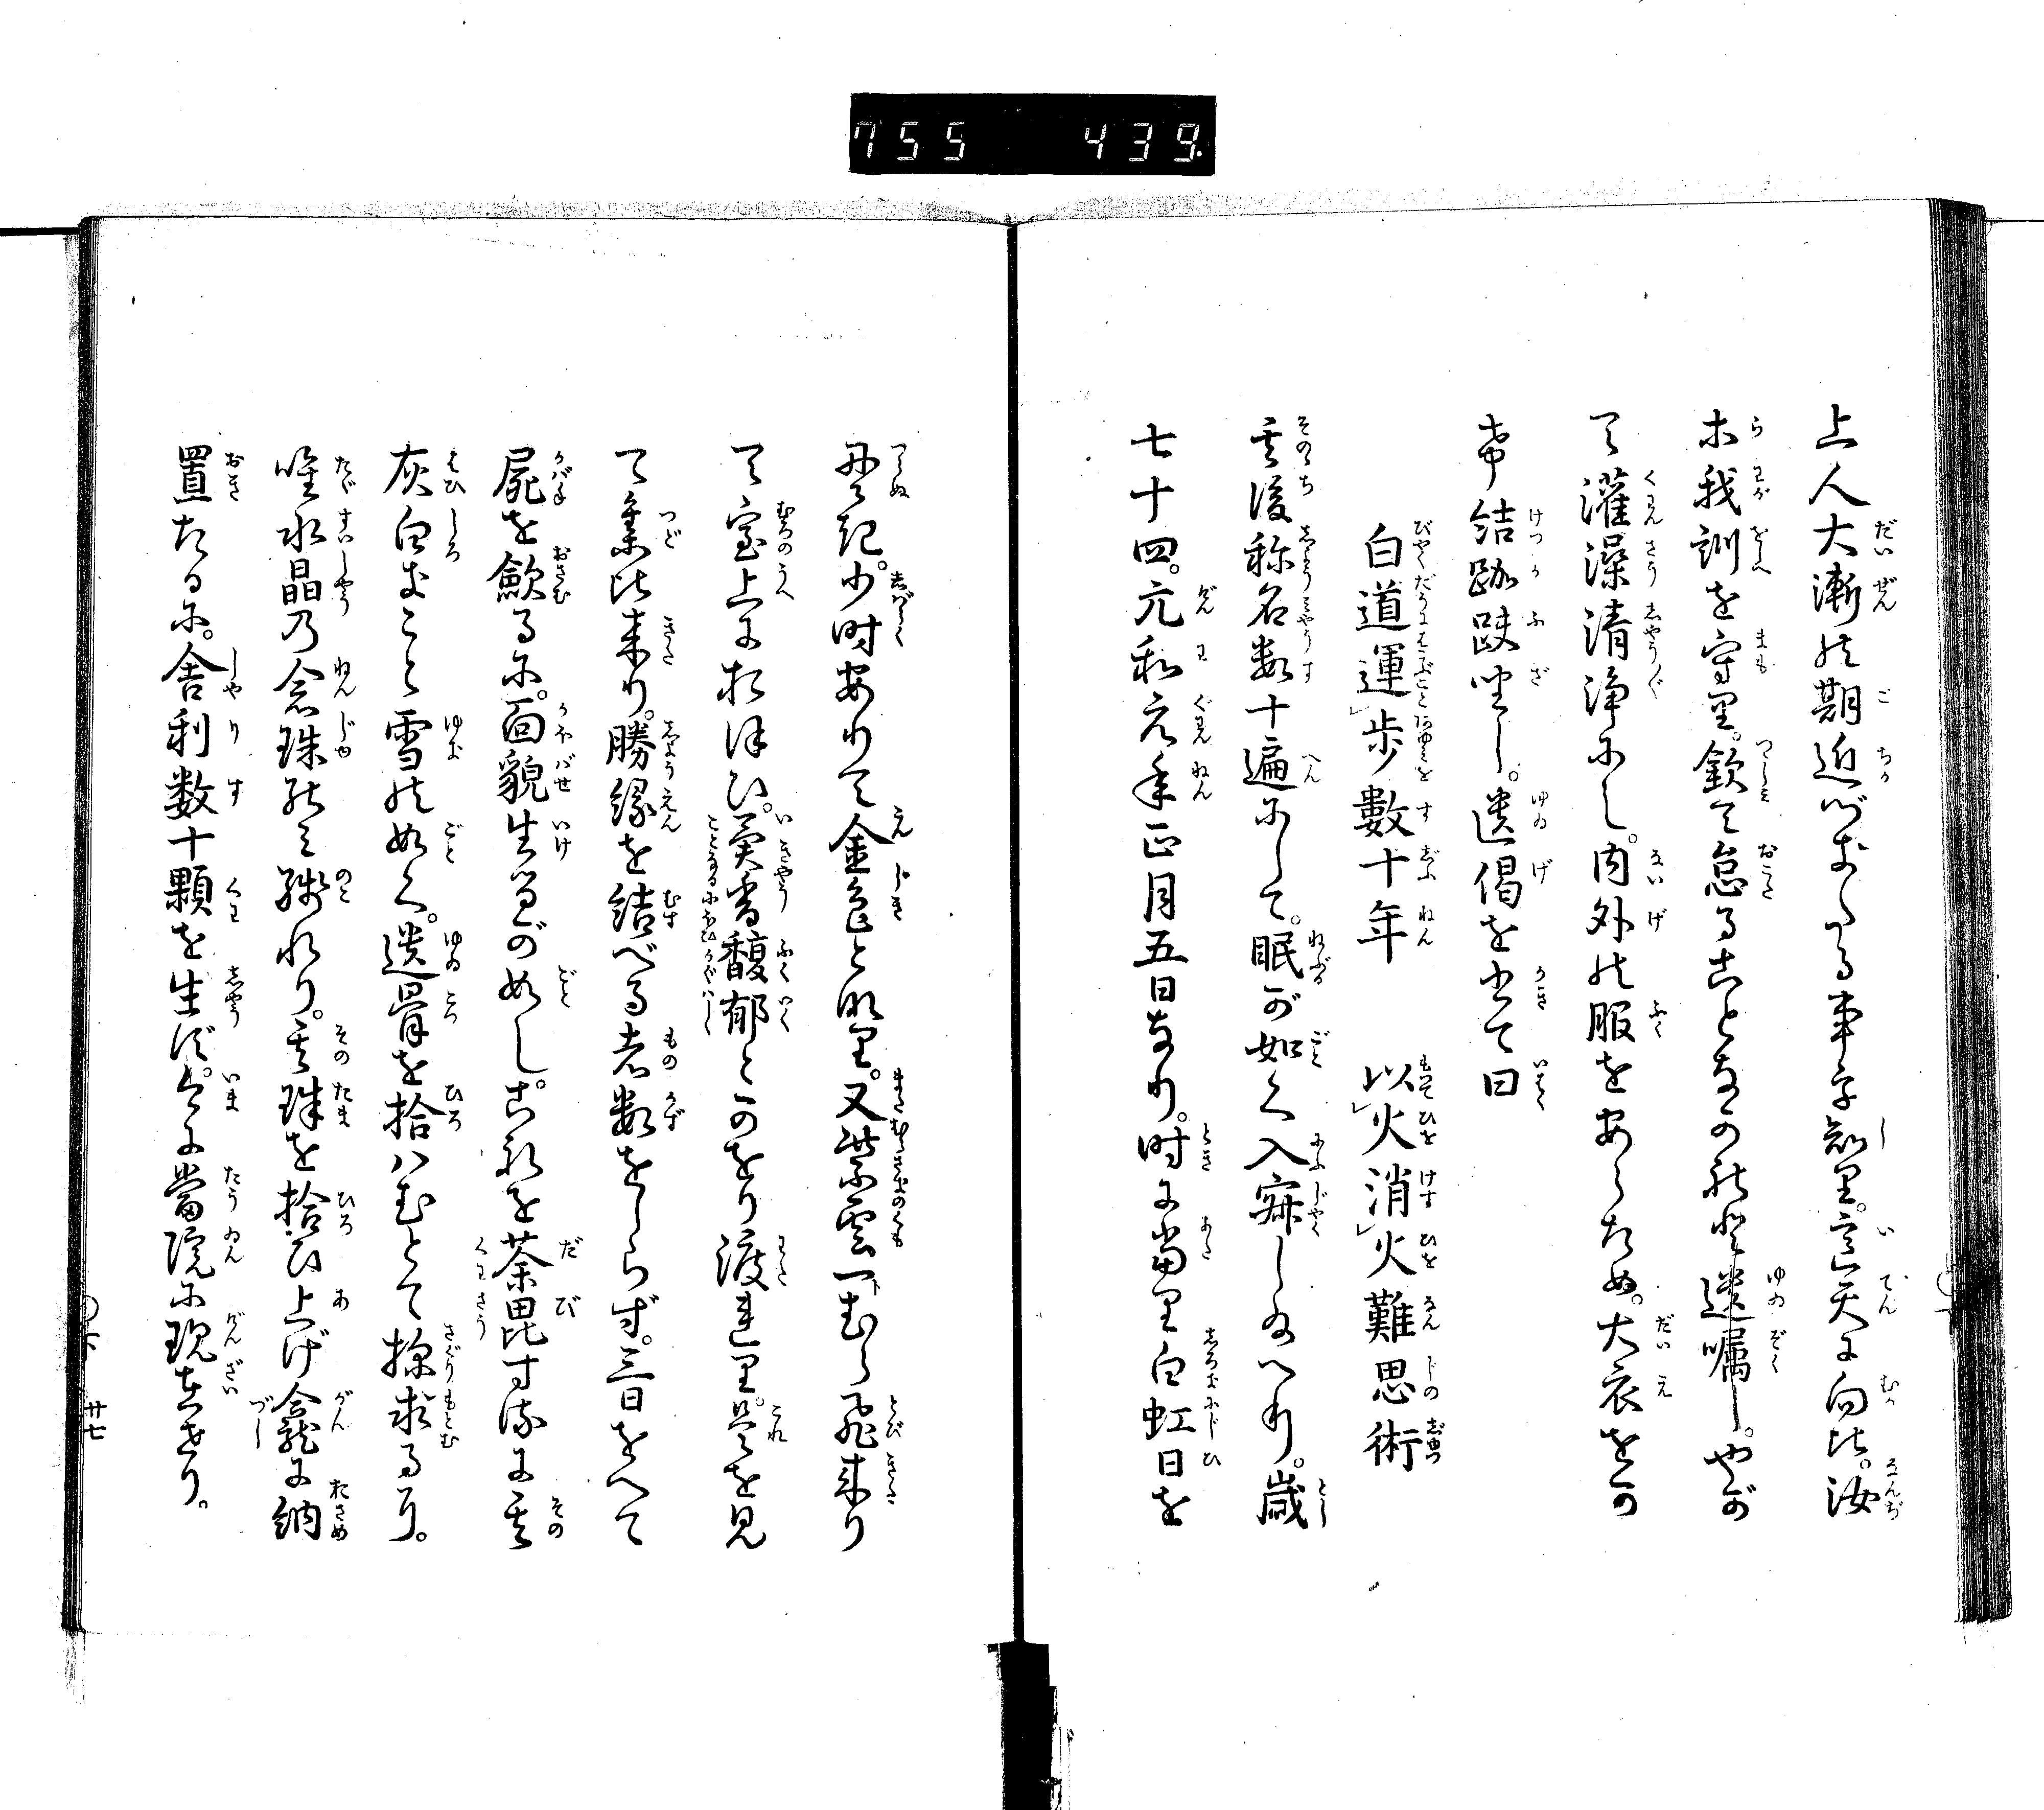 755 439
上人大漸の期近づきたる事を知り。言天に向ひ。汝
ホ我訓を守り。欽て怠ることなかれと遺嘱し。やが
て灌澡清浄にし。内外の服をあらため。大衣をか
け結跏趺坐し。遺偈を書て曰
白道運歩數十年　以火消火難思術
其後称名数十遍にして。眠が如く入寂し給へり。歳
七十四。元和元年正月五日なり。時に当り白虹日を
貫き。少時ありて金色と成り。又紫雲一むら飛来り
て室上におほひ。異香馥郁とかをり渡れり。是を見
て集ひ来り。勝縁を結べる者数をしらず。三日をへて
屍を斂るに。面貌生るがごとし。これを荼毘するに其
灰白きこと雪の如く。遺骨を拾はむとて探求るに。
唯水晶の念珠のミ残れり。其珠を拾ひ上げ龕に納
置たるに。舎利数十顆を生ず。今に當院に現在せり。
下 廿七